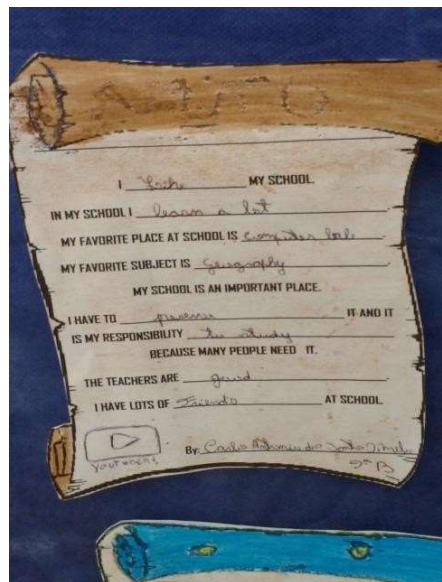 I like MY SCHOOL.
IN MY SCHOOL I learn a lot
MY FAVORITE PLACE AT SCHOOL IS computer lab.
MY FAVORITE SUBJECT IS Geography
MY SCHOOL IS AN IMPORTANT PLACE.
I HAVE TO preserve IT AND IT
IS MY RESPONSIBILITY the study
BECAUSE MANY PEOPLE NEED IT.
THE TEACHERS ARE good
I HAVE LOTS OF Friends AT SCHOOL.
By: Carlos Antonio dos
9º B